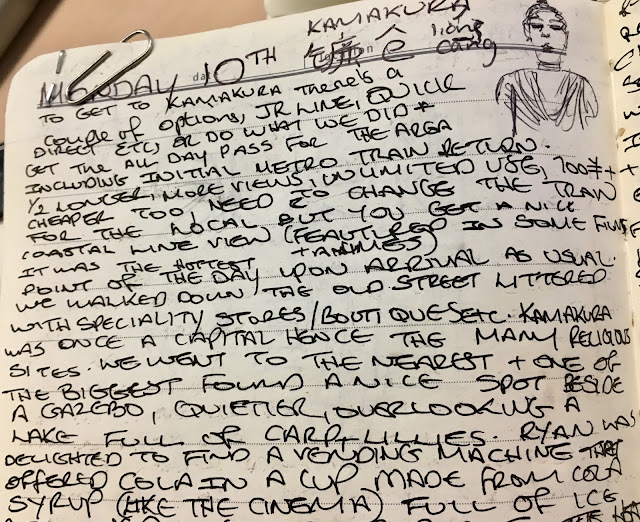 KAMAKURA
MONDAY 10TH ê liông cáng
TO GET TO KAMAKURA THERE'S A
COUPLE OF OPTIONS, JR LINE, QUICK
DIRECT ETC, OR DO WHAT WE DID *
GET THE ALL DAY PASS FOR THE AREA
INCLUDING INITIAL METRO TRAIN RETURN.
½ LONGER, MORE VIEWS, UNLIMITED USE, 700¥ +
CHEAPER TOO, NEED TO CHANGE THE TRAIN
FOR THE LOCAL BUT YOU GET A NICE
COASTAL LINE VIEW (FEATURED IN SOME FILMS
+ ANIMES)
IT WAS THE HOTTEST
POINT OF THE DAY UPON ARRIVAL AS USUAL.
WE WALKED DOWN THE OLD STREET LITTERED
WITH SPECIALITY STORES/BOUTIQUES ETC. KAMAKURA
WAS ONCE A CAPITAL HENCE THE MANY RELIGIOUS
SITES. WE WENT TO THE NEAREST + ONE OF
THE BIGGEST FOUND A NICE SPOT BESIDE
A GAZEBO, QUIETER, OVERLOOKING A
LAKE FULL OF CARP + LILLIES. RYAN WAS
DELIGHTED TO FIND A VENDING MACHINE THAT
OFFERED COLA IN A CUP MADE FROM COLA
SYRUP (LIKE THE CINEMA) FULL OF ICE